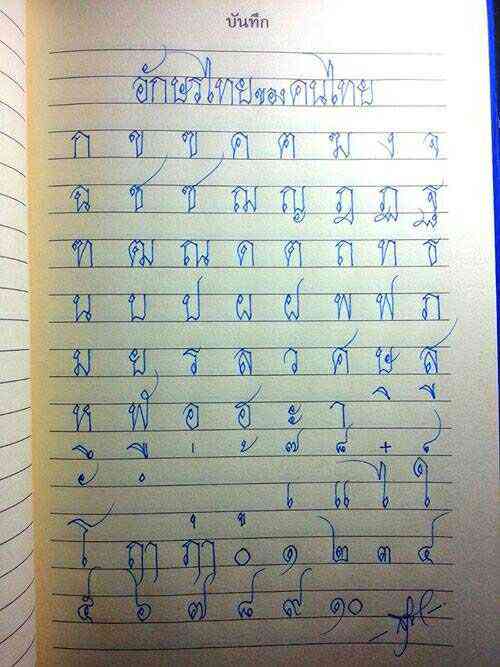 บันทึก
อักษรไทยของคนไทย
ก ข ฃ ค ฅ ฆ ง จ
ฉ ช ซ ฌ ญ ฎ ฏ ฐ
ฑ ฒ ณ ด ต ถ ท ธ
น บ ป ผ ฝ พ ฟ ภ
ม ย ร ล ว ศ ษ ส
ห ฬ อ ฮ ะ า ิ ี
ึ ื ่ ้ ๊ ็ ๋ ์
ั ํ เ แ ไ ใ
โ ฤๅ ฦๅ ุ ู ๐ ๑ ๒ ๓ ๔
๕ ๖ ๗ ๘ ๙ ๑๐